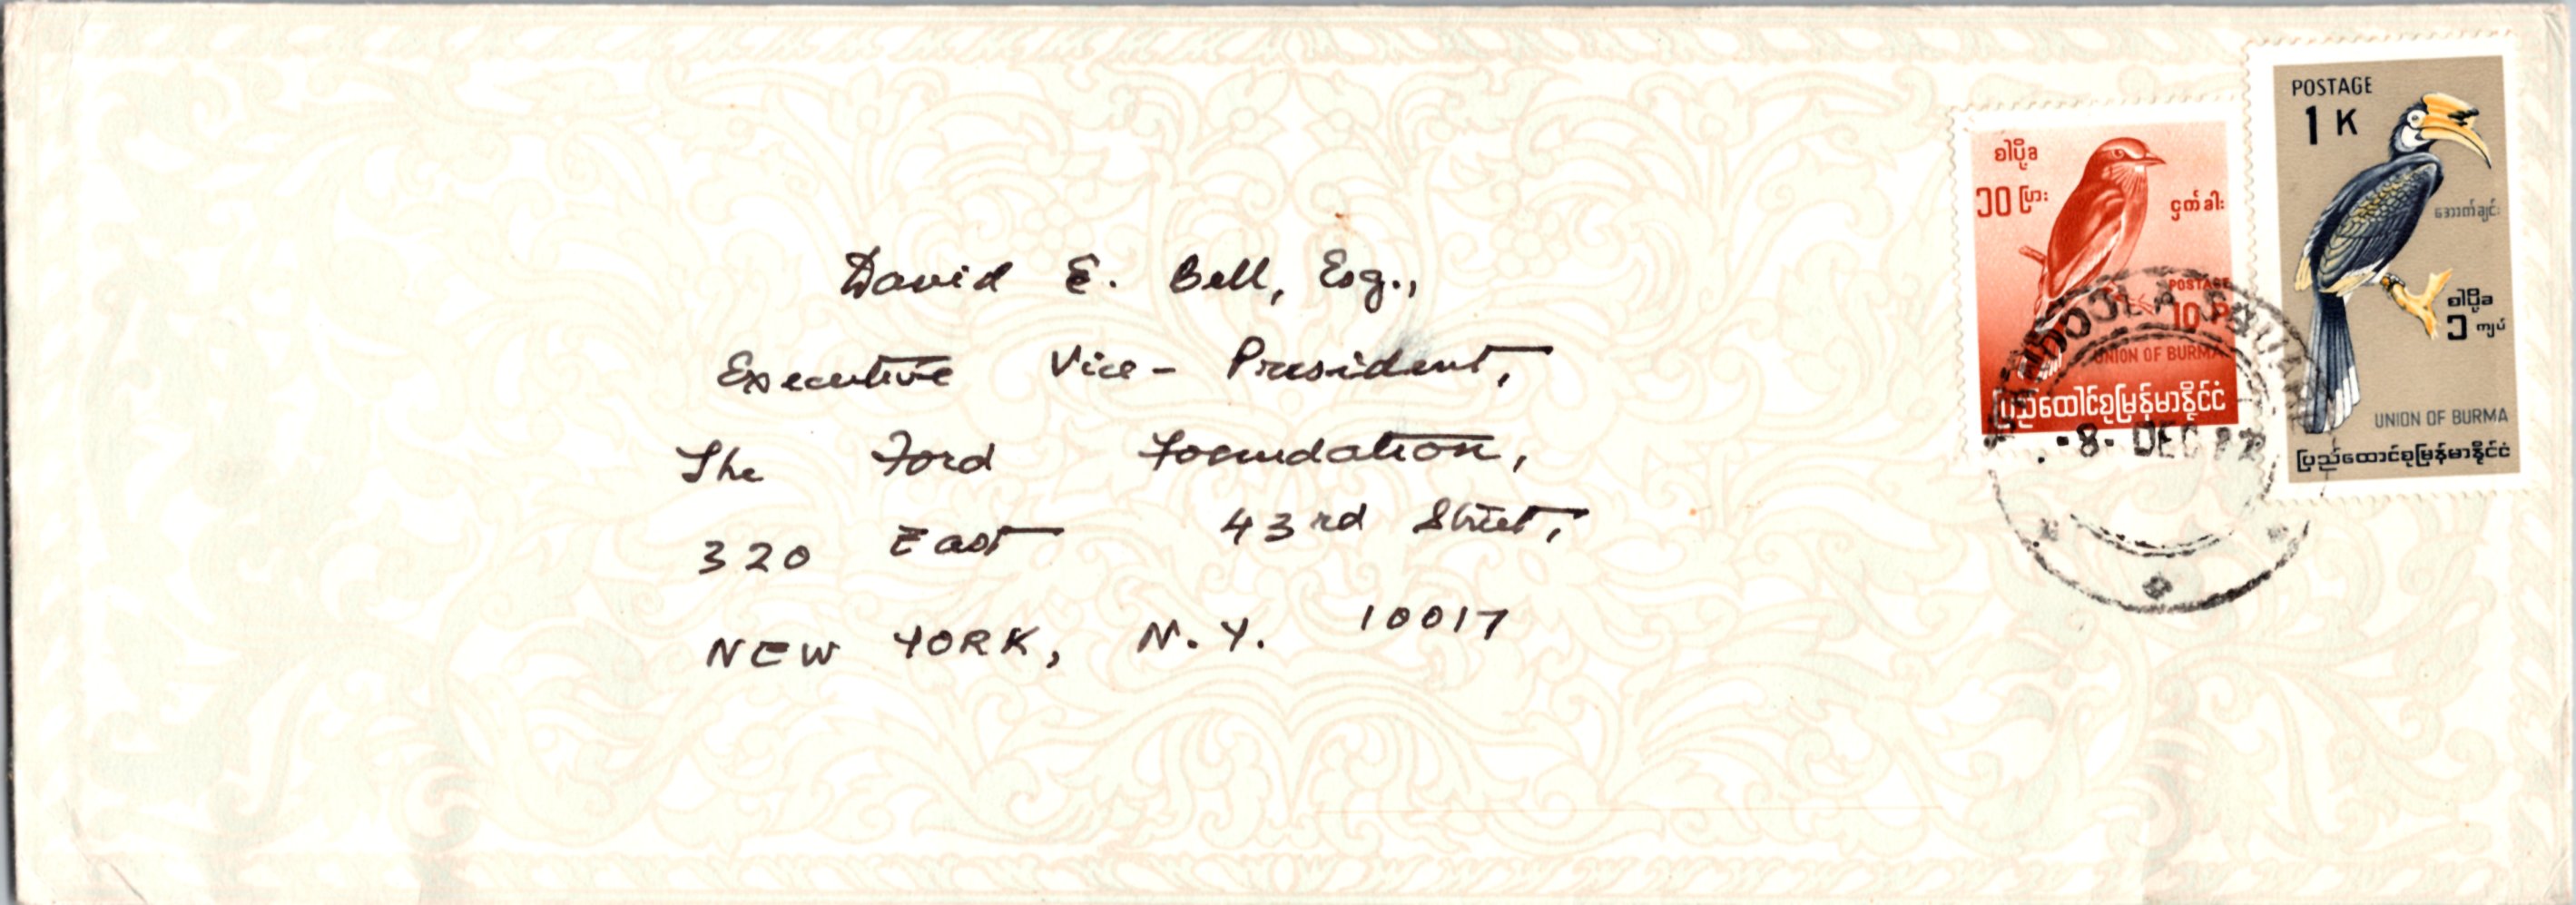 David E. Bell, Esq.,
Executive Vice-President,
The Ford Foundation,
320 East 43rd Street,
NEW YORK, N.Y. 10017
စါပို့ခ
၁၀ ပြား
ငှက်ခါး
POSTAGE
10 P
UNION OF BURMA
ပြည်ထောင်စုမြန်မာနိုင်ငံ
-8- DEC
POSTAGE
1 K
အောက်ချင်း
စါပို့ခ
၁ ကျပ်
UNION OF BURMA
ပြည်ထောင်စုမြန်မာနိုင်ငံ